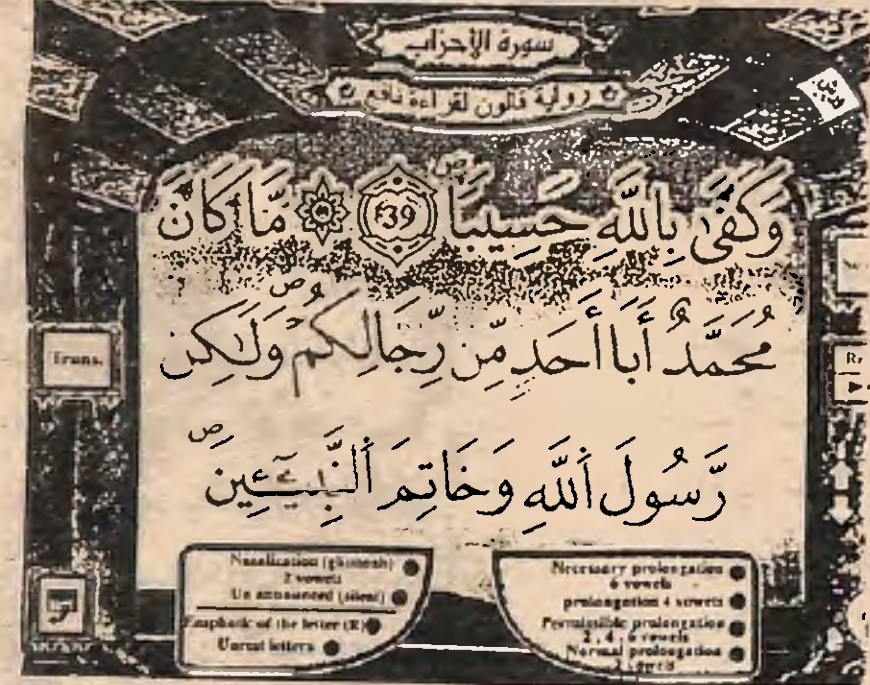 سورة الأحزاب
رواية قالون لقراءة نافع
ورش
وَكَفَىٰ بِاللَّهِ حَسِيبًا ص 39 مَّا كَانَ
مُحَمَّدٌ أَبَا أَحَدٍ مِّن رِّجَالِكُمْ ص وَلَٰكِن
رَّسُولَ اَللَّهِ وَخَاتِمَ اَلنَّبِيٓـِٕينَ ص
Trans.
Nasalization (ghunnah)
2 vowels
Un announced (silent)
Emphatic of the letter (R)
Unrest letters
Necessary prolongation
6 vowels
prolongation 4 vowels
Permissible prolongation
2 , 4 , 6 vowels
Normal prolongation
2 vowels